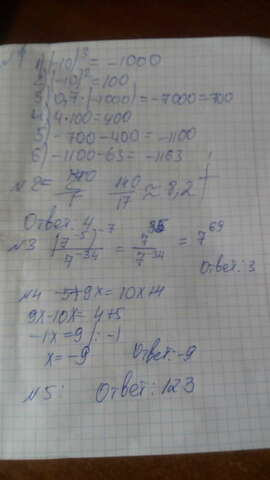 №1 1) (-10)³ = -1000
2) (-10)² = 100
3) 0,7 · (-1000) = -7000 = 700
4) 4·100 = 400
5) -700-400 = -1100
6) -1100-63 = -1163
№2 = 140/17 ≈ 8,2
Ответ: 4
№3 (7⁻⁵)⁻⁷/7⁻³⁴ = 7³⁵/7⁻³⁴ = 7⁶⁹
Ответ: 3
№4 -5+9x = 10x+4
9x-10x = 4+5
-1x = 9 /: -1
x = -9 Ответ: -9
№5: Ответ: 123